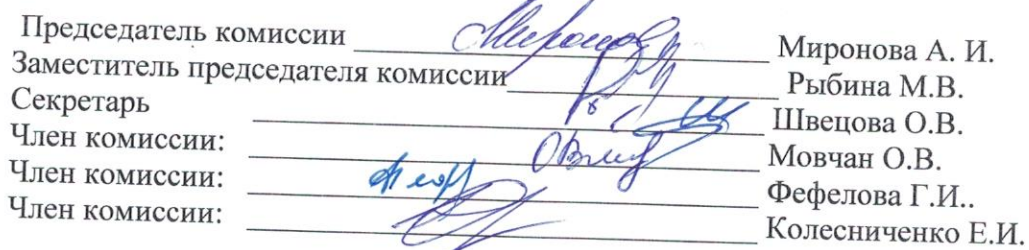 Председатель комиссии Миронова А. И.
Заместитель председателя комиссии Рыбина М.В.
Секретарь Швецова О.В.
Член комиссии: Мовчан О.В.
Член комиссии: Фефелова Г.И..
Член комиссии: Колесниченко Е.И.